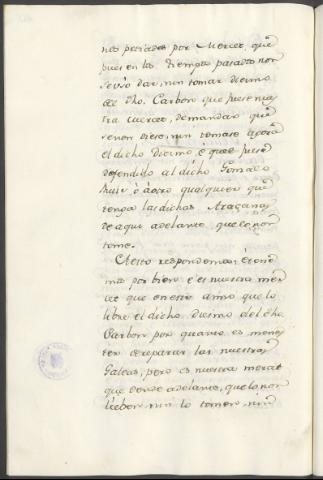 nos pediades por Merced, que
pues en los tiempos pasados non
se usó dar, nin tomar diezmo
del dho. Carbon que fuese nues
tra merced, demandar que
se non diese, nin tomase agora
el dicho Diezmo é que fuese
defendido al dicho Gonzalo
Ruis ó á otro qualquier que
tenga las dichas Ataçanas
de aqui adelante que lo non
tome.
A esto respondemos: é tene
mos por bien é es nuestra mer
ced que en este anno que lo
libre el dicho diezmo del dho
Carbon por quanto es menes
ter de reparar las nuestras
Galeas, pero es nuestra merced
que dende adelante, que lo non
lieben nin lo tomen, nin